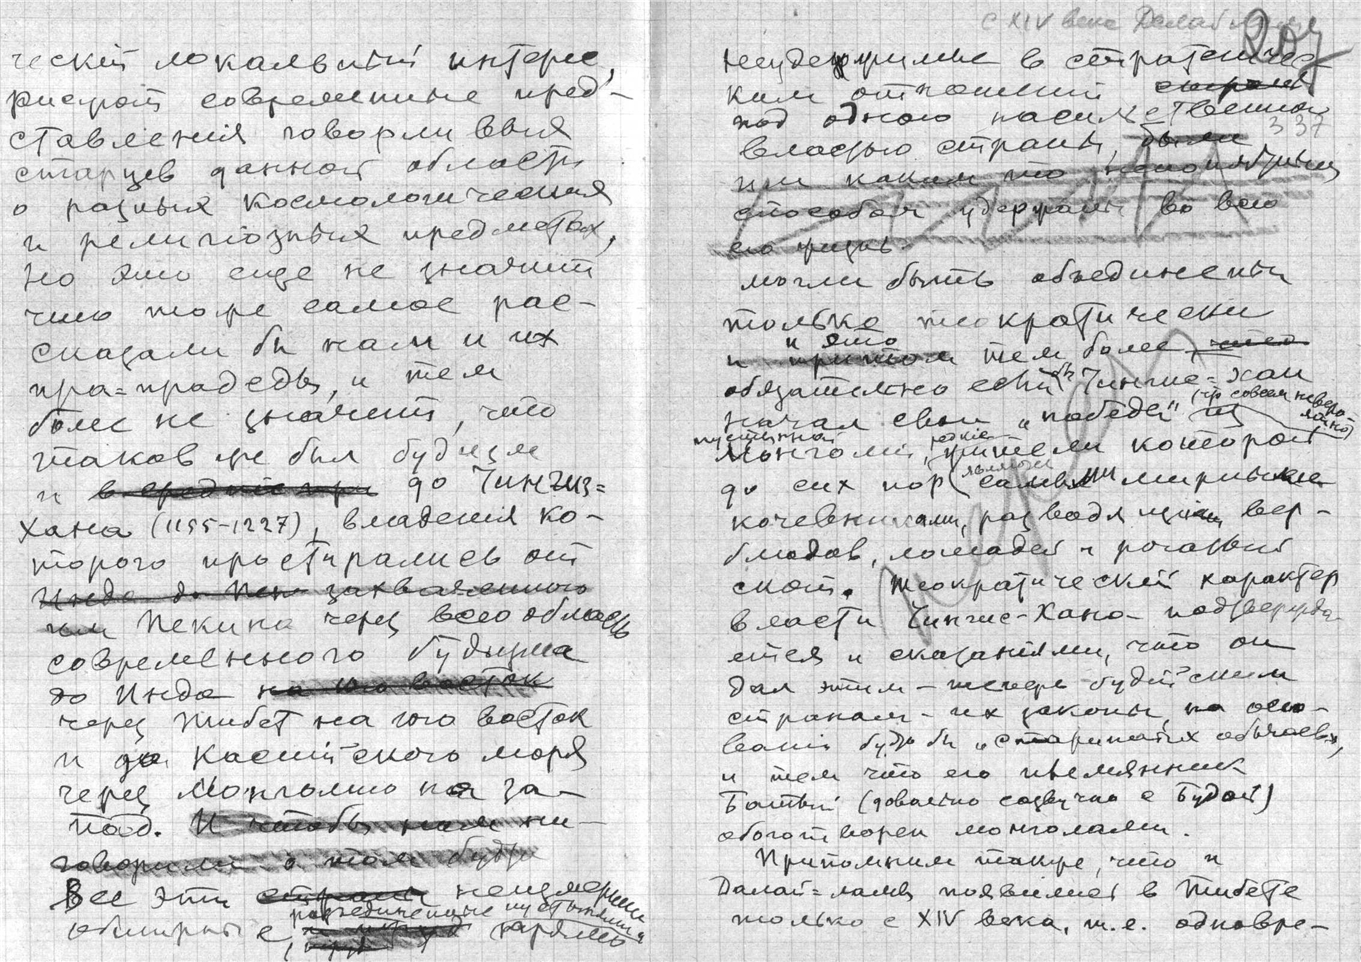 ческiй локальный интерес,
рисуют современные пред-
ставленiя говорливыя
старцев данной области
о разных космологических
и религiозных предметах,
но это еще не значит
что тоже самое рас-
сказали бы нам и их
пра=прадеды, и тем
более не значит, что
таков же был будизм
и до Чингиз=
Хана (1155-1227), владенiя ко-
торого простирались от
Инда до Пек захваченного
им Пекина через всю область
современного будизма
до Инда на юго восток
через Тибет на юго восток
и до Каспiйского моря
через Монголiю на за-
пад. И чтобы нам ни-
говорили о том будто
Все эти страны неизмеримо
обширные, разъединенные пустынями
с XIV века Далай ламы
207
неудержимые в стратегичес-
ким отношенiи
под одною насильственною
337
властью страны, были
ни каким то непонятным
способом удержаны во всю
его жизнь
могли быть объединены
только теократически
и это
и притом тем более
обязательно если бы Чингис=хан
начал свои „победы" из
(что совсем невероятно)
пустынной
Монголiи, редкiе жители которой
до сих пор являются самыми мирными
кочевниками, разводящими вер-
блюдов, лошадей и рогатый
скот. Теократическiй характер
власти Чингис-Хана подтвержда-
ется и сказанiями, что он
дал этим - теперь будiйским
странам - их законы, на осно-
ванiи будто бы „старинных обычаев",
и тем что его племянник
Батый (довольно созвучно с Будой)
обоготворен монголами.
Припомним также, что и
Далай=ламы появились в Тибете
только с XIV века, т.е. одновре-